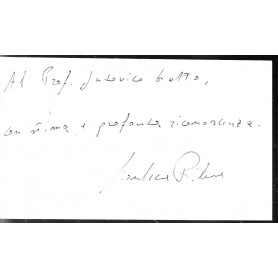 Al Prof. Ludovico Gatto,
con stima e profonda riconoscenza.